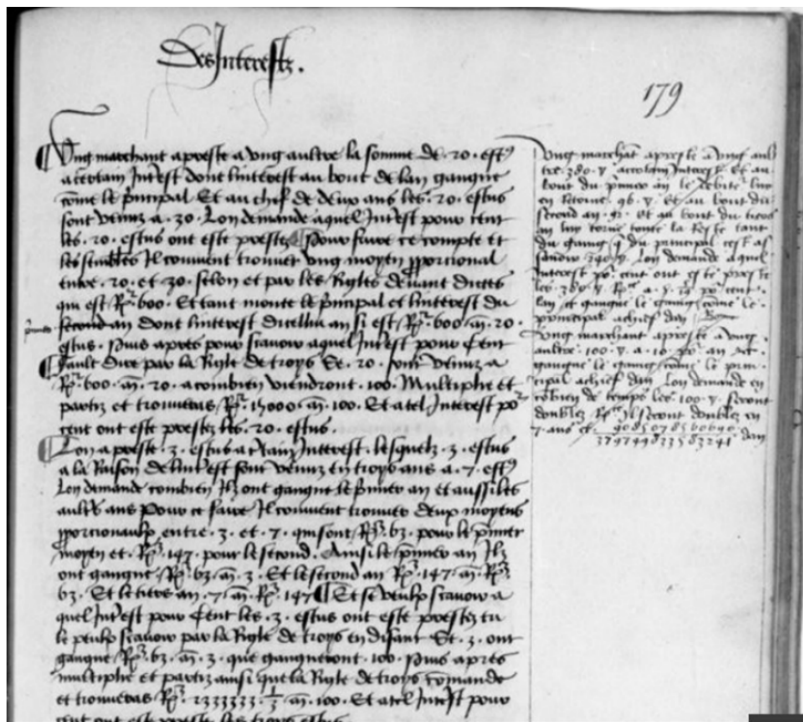 Des Interestz.
179
Ung marchant a preste a ung aultre la somme de .20. estus
a certain Interest dont linterest au bout de lan gangne
come le principal Et au chef de deux ans les .20. estus
sont venuz a .30. Lon demande a quel Interest pour cent
les .20. estus ont este prestez Pour faire ce compte et
les semblables Il convient trouver ung moyen pporcional
entre .20. et .30. selon et par les Rigles devant dictes
qui est R².600. Et tant monte le principal et linterest du
second an dont linterest dicellui an si est R².600. m̃. 20.
estus. Puis apres pour scavoir a quel Interest pour Cent
fault dire par la Rigle de troys Se .20. sont venuz a
R².600. m̃. 20. a combien viendront .100. Multiplie et
partiz et trouveras R².15000. m̃. 100. Et a tel Interest po²
cent ont este prestez les .20. estus.
Lon a preste .3. estus a Interest. lesquelz .3. estus
a la Raison de linterest sont venuz en troys ans a .7. estus
Lon demande combien Ilz ont gangne le primier an et aussi les
aultres ans Pour ce faire Il convient trouver deux moyens
pporcionaulx entre .3. et .7. qui sont R³.63. pour le primier
moyen et R³.147. pour le second. Ainsi le primier an Ilz
ont gangne R³.63. m̃. 3. Et le second an R³.147. m̃. R³.
63. Et le tiers an .7. m̃. R³.147 Et se veulx scavoir a
quel Interest pour Cent les .3. estus ont este prestez tu
le peulx scavoir par la Rigle de troys en disant Se .3. ont
gangne R³.63. m̃. 3. que gangneront .100. Puis apres
multiplie et partiz ainsi que la Rigle de troys comande
et trouveras R³.2333333.1/3. m̃. 100. Et a tel Interest pour
cent ont este prestez les troys estus
Ung marchant a preste a ung aul
tre .380. a certain Interest Et au
bout du primier an le debite luy
en retorne .96. Et au bout du
second an Et au bout du tiers
an luy torne toute la Reste tant
du gaing q̃ du principal
Lon demande a quel
Interest po² cent ont este preste
les po² cent.
lan et gangne le gaing come le
principal achief dan
Ung marchant a preste a ung
aultre .100. a .10. po² an et
gangne le gaing come le prin
cipal achief dan Lon demande en
combien de temps les .100. seront
doublez Ilz seront doublez en
7. ans et
dan